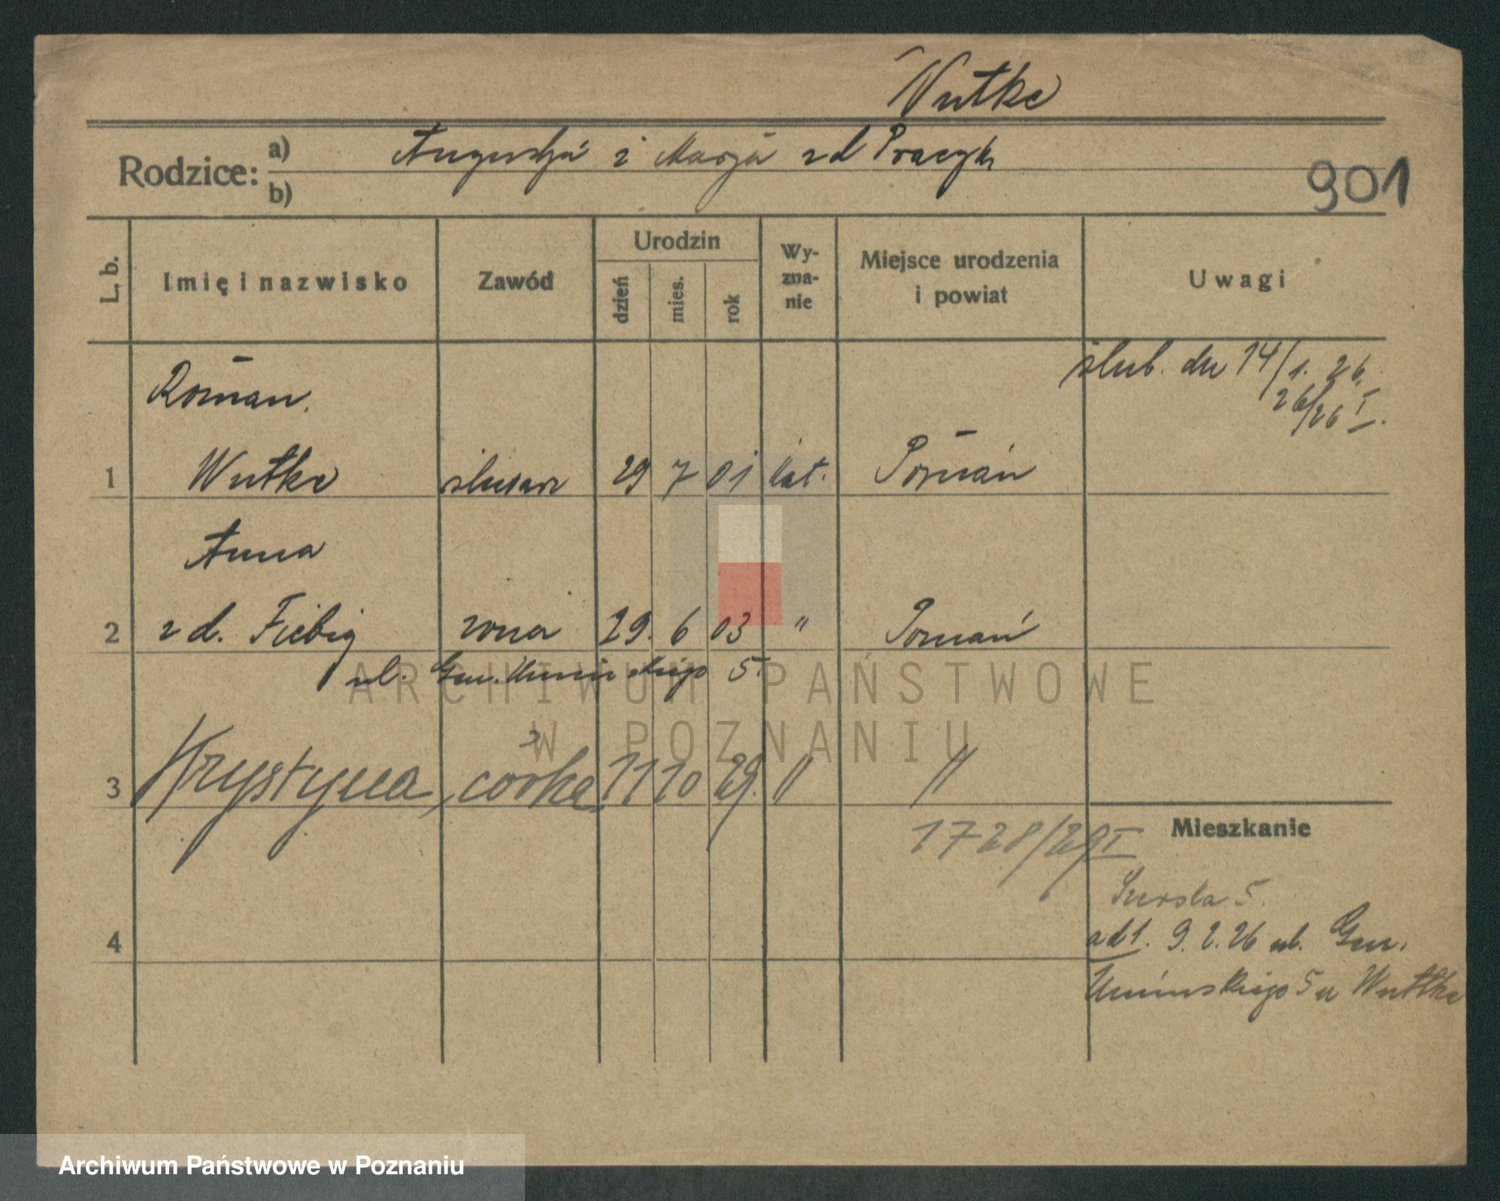 Wutke
Rodzice: a) Augustyn i Marja zd Praczyk
b)
901
L. b.
Imię i nazwisko
Zawód
Urodzin
dzień
mies.
rok
Wy-
zna-
nie
Miejsce urodzenia
i powiat
Uwagi
ślub. dn 14/1. 26.
26/26 I.
Roman.
1 Wutke ślusarz 29 7 01 kat. Poznań
Anna
2 z d. Fiebig żona 29. 6 03 " Poznań
ul. Gen. Umińskiego 5.
3 Krystyna, córka 11 10 29. " "
1728/29 I
Mieszkanie
5.
4
adt. 9.2.26 ul. Gen.
Umińskiego 5 u Wutke
ARCHIWUM PAŃSTWOWE
W POZNANIU
Archiwum Państwowe w Poznaniu